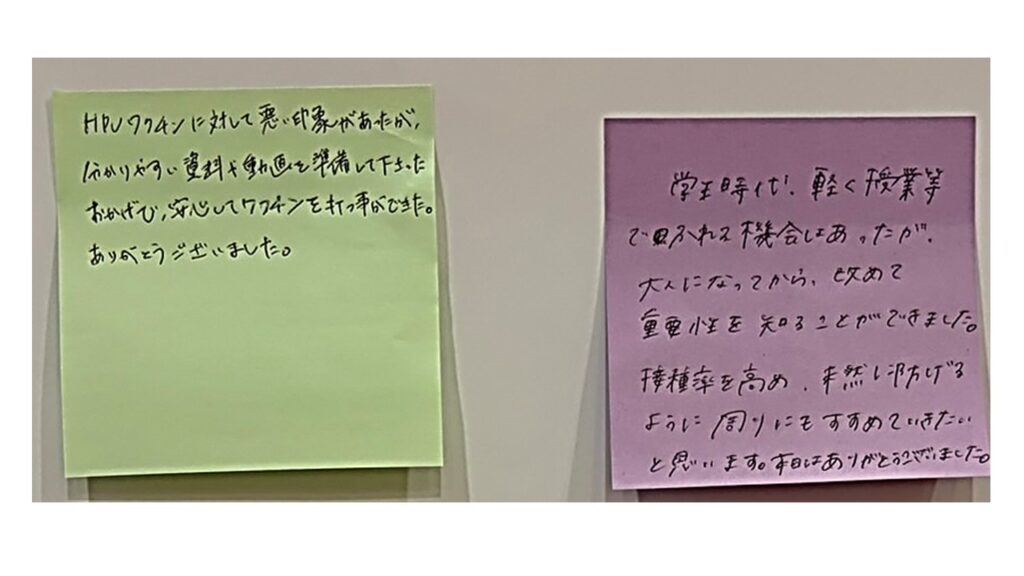 HPVワクチンに対して悪い印象があったが、
分かりやすい資料や動画を準備して下さった
おかげで、安心してワクチンを打つ事ができた。
ありがとうございました。
学生時代、軽く授業等
で触れる機会はあったが、
大人になってから、改めて
重要性を知ることができました。
接種率を高め、未然に防げる
ように周りにもすすめていきたい
と思います。本日はありがとうございました。